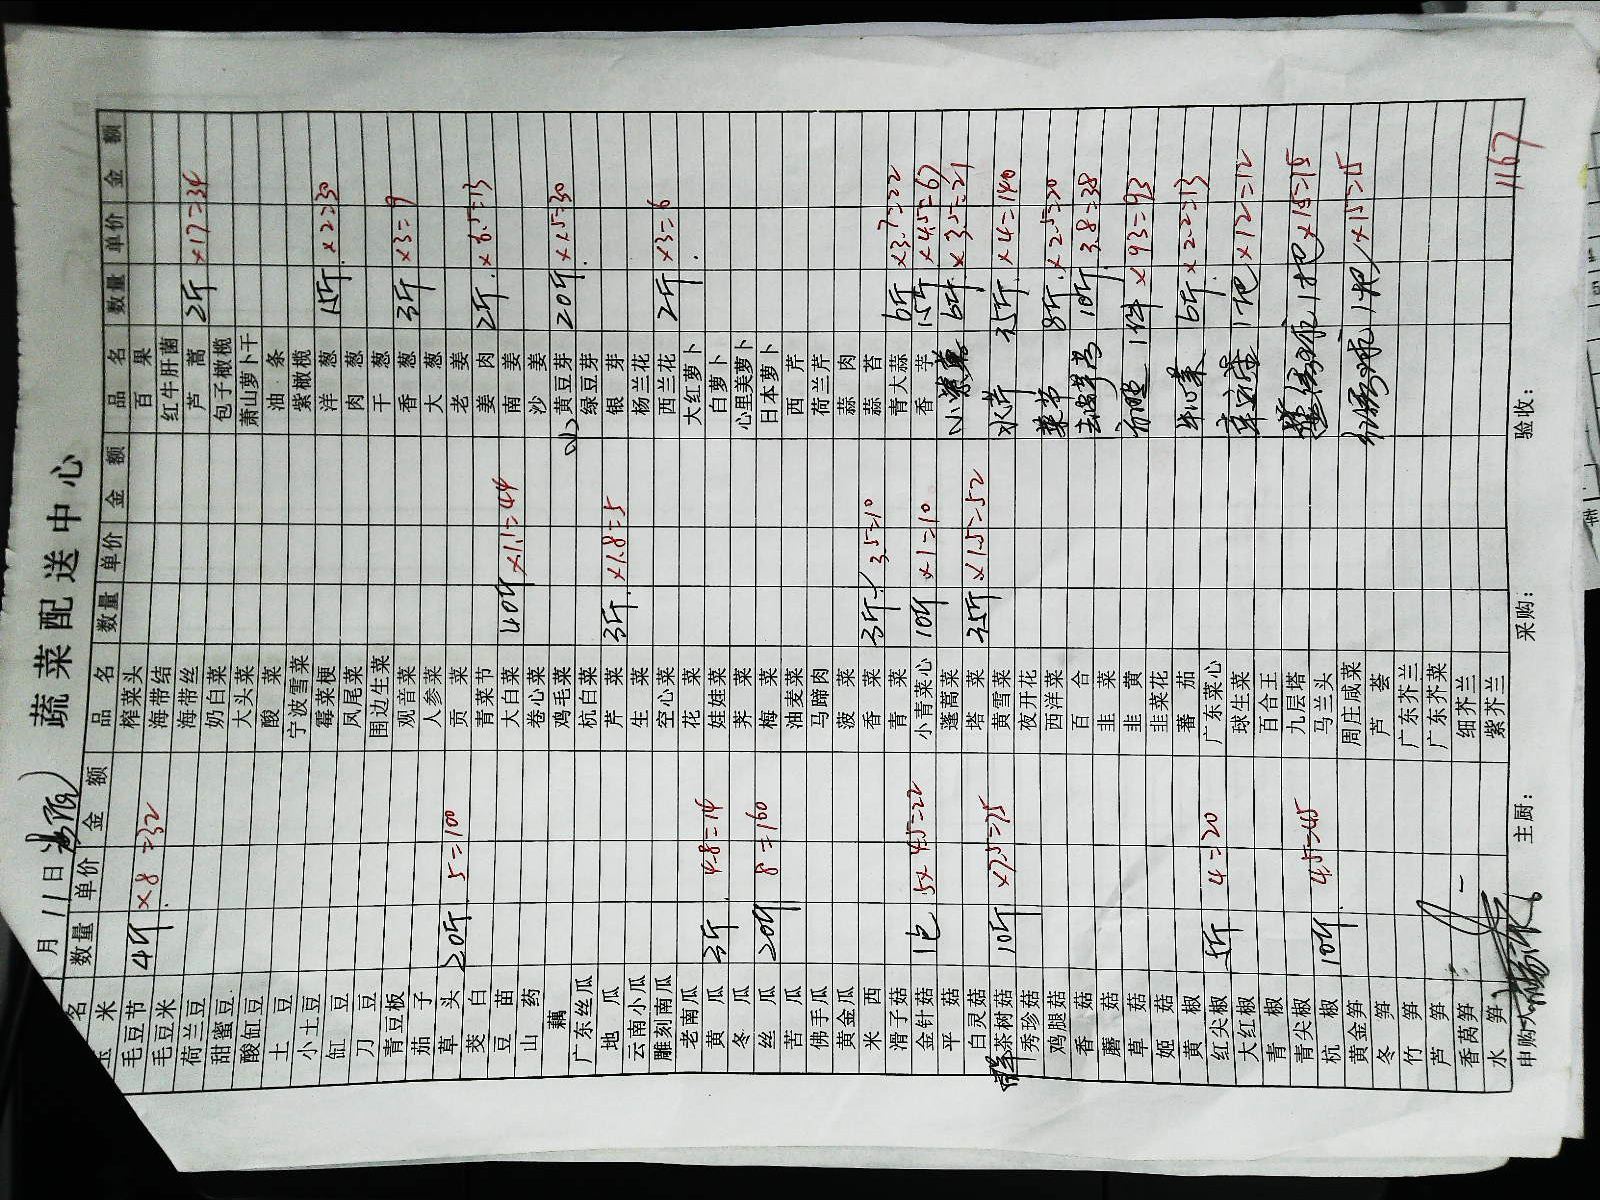 蔬菜配送中心
月11日
名 数量 单价 金额 品名 数量 单价 金额 品名 数量 单价 金额
玉米 榨菜头 百果
毛豆节 4斤 ×8=32 海带结 红牛肝菌
毛豆米 海带丝 芦蒿 2斤 ×17=34
荷兰豆 奶白菜 包子橄榄
甜蜜豆 大头菜 萧山萝卜干
酸缸豆 酸菜 油条
土豆 宁波雪菜 紫橄榄
小土豆 霉菜梗 洋葱 15斤 ×2=30
缸豆 凤尾菜 肉葱
刀豆 围边生菜 干葱
青豆板 观音菜 香葱 3斤 ×3=9
茄子 人参菜 大葱
草头 20斤 5=100 贡菜 老姜
茭白 青菜节 姜肉 2斤 ×6.5=13
豆苗 大白菜 40斤 ×1.1=44 南姜
山药 卷心菜 沙姜
藕 鸡毛菜 黄豆芽 20斤 ×1.5=30
广东丝瓜 杭白菜 绿豆芽
地瓜 芹菜 3斤 ×1.8=5 银芽
云南小瓜 生菜 杨兰花
雕刻南瓜 空心菜 西兰花 2斤 ×3=6
老南瓜 花菜 大红萝卜
黄瓜 3斤 4.8=14 娃娃菜 白萝卜
冬瓜 荠菜 心里美萝卜
丝瓜 20斤 8=160 梅菜 日本萝卜
苦瓜 油麦菜 西芹
佛手瓜 马蹄肉 荷兰芹
黄金瓜 菠菜 蒜肉
米西 香菜 3斤 3.5=10 蒜苔
滑子菇 青菜 青大蒜 6斤 ×3.7=22
金针菇 1包 5×4.5=22 小青菜心 10斤 ×1=10 香芋 15斤 ×4.5=67
平菇 蓬蒿菜 小 6斤 ×3.5=21
白灵菇 塔菜 35斤 ×1.5=52
茶树菇 10斤 ×7.5=75 黄雪菜 水芹 35斤 ×4=140
秀珍菇 夜开花
鸡腿菇 西洋菜 8斤 ×2.5=20
香菇 百合 10斤 3.8=38
蘑菇 韭菜
草菇 韭黄 1件 ×93=93
姬菇 韭菜花
黄椒 蕃茄 6斤 ×2.2=13
红尖椒 5斤 4=20 广东菜心
大红椒 球生菜 1包 ×12=12
青椒 百合王
青尖椒 九层塔 1把 ×15=15
杭椒 10斤 4.5=45 马兰头
黄金笋 周庄咸菜 1把 ×15=15
冬笋 芦荟
竹笋 广东芥兰
芦笋 广东芥菜
香莴笋 细芥兰
水笋 紫芥兰 1167
申购: 主厨: 采购: 验收: